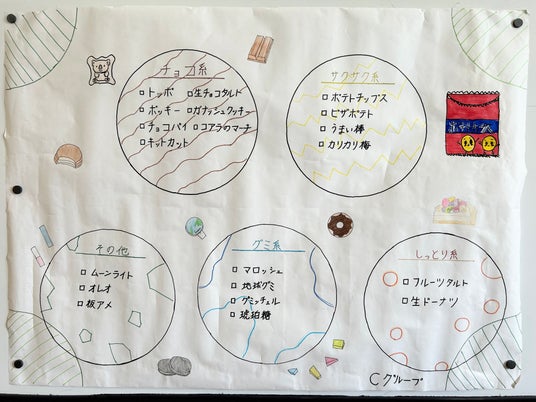 チョコ系
□トッポ □生チョコタルト
□ポッキー □ガナッシュクッキー
□チョコパイ □コアラのマーチ
□キットカット
サクサク系
□ポテトチップス
□ピザポテト
□うまい棒
□カリカリ梅
その他
□ムーンライト
□オレオ
□板アメ
グミ系
□マロッシュ
□地球グミ
□グミッチェル
□琥珀糖
しっとり系
□フルーツタルト
□生ドーナツ
Cグループ